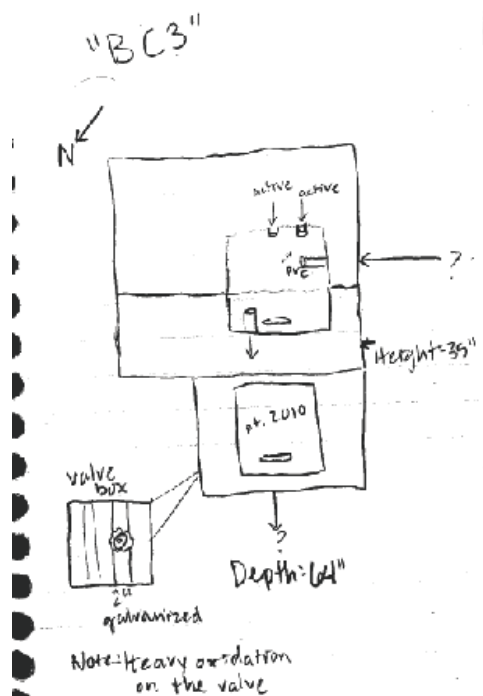 "BC3"
N
active active
PVC
?
Height=35"
pt. 2010
valve
box
?
Depth: 64"
galvanized
Note: Heavy oxidation
on the valve